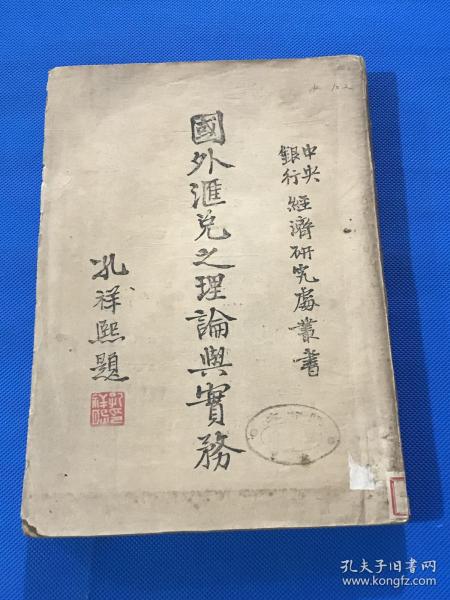 中央
銀行
經濟研究處叢書
國外滙兌之理論與實務
孔祥熙題
孔夫子旧书网
www.kongfz.com